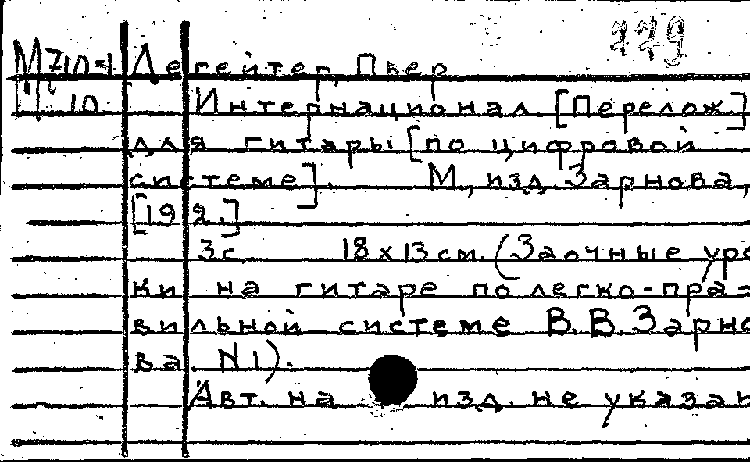 229
М710-1 Дегейтер, Пьер
10 Интернационал [Перелож.
для гитары [по цифровой
системе]. М., изд. Зарнова,
[192.]
3с. 18x13см. (Заочные уро
ки на гитаре по легко-пра-
вильной системе В.В. Зарно
ва. N1).
Авт. на изд. не указан